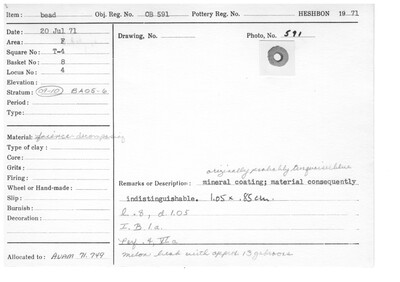 Item: bead Obj. Reg. No. OB 591 Pottery Reg. No. HESHBON 1971
Date: 20 Jul 71
Drawing, No.
Photo, No. 591
Area: F
Square No: T-4
Basket No: 8
Locus No: 4
Elevation:
Stratum: BA05-6
Period:
Type:
Material: faience-decomposing
Type of clay:
Core:
Grits:
Firing:
Wheel or Hand-made:
Slip:
Burnish:
Decoration:
originally probably turquoise blue
Remarks or Description: mineral coating; material consequently
indistinguishable. 1.05 x .85 cm.
l. .8, d 1.05
I. B.1.a
Perf. .4,
melon bead with approx 13 grooves
Allocated to: AUAM 71.749